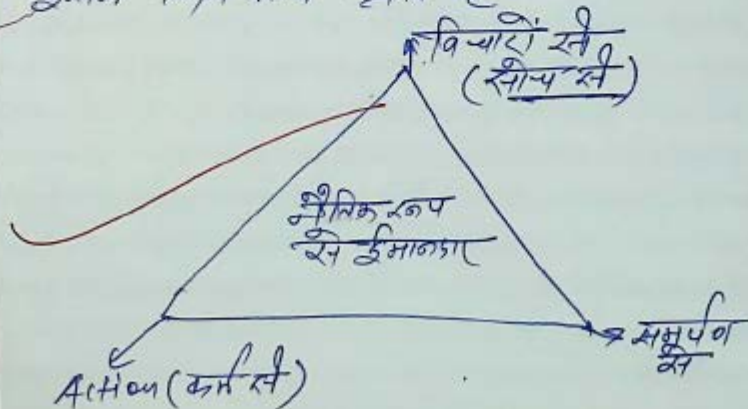 विचारों से
(सोच से)
नैतिक रूप
से ईमानदार
समर्पण
से
Action (कर्म से)